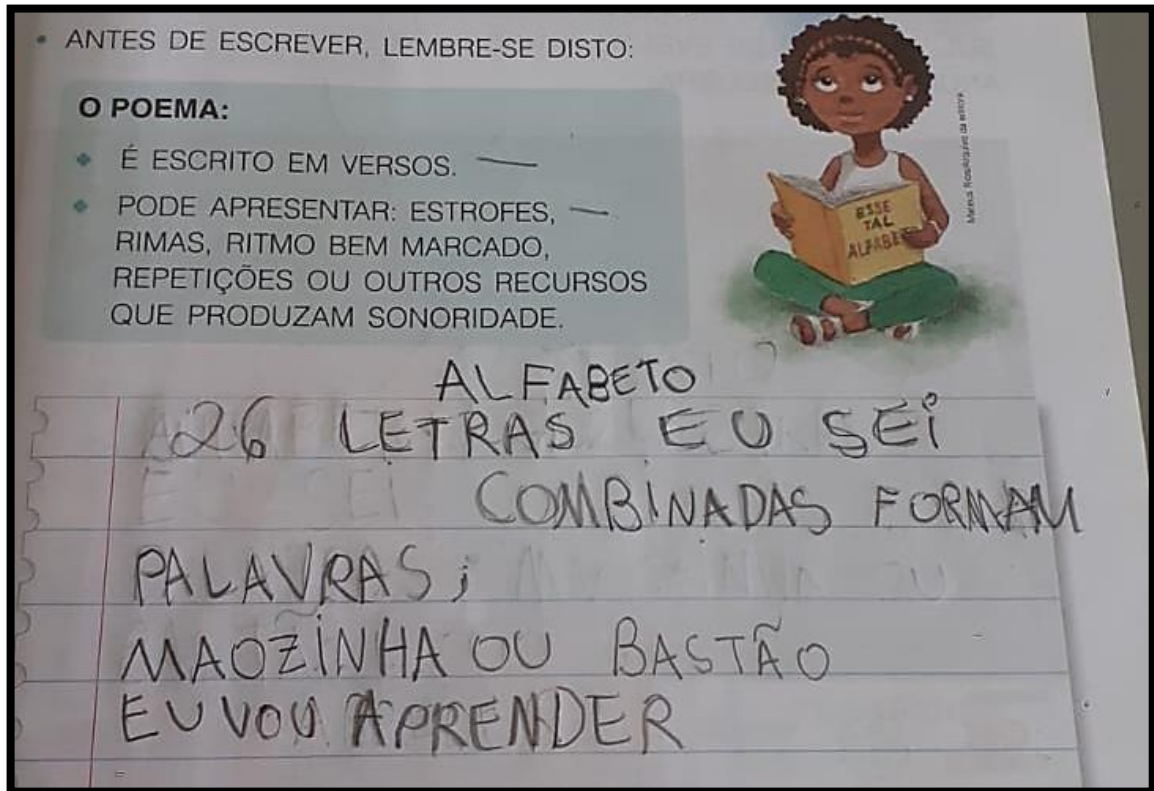 • ANTES DE ESCREVER, LEMBRE-SE DISTO:
O POEMA:
É ESCRITO EM VERSOS.
PODE APRESENTAR: ESTROFES,
RIMAS, RITMO BEM MARCADO,
REPETIÇÕES OU OUTROS RECURSOS
QUE PRODUZAM SONORIDADE.
ESSE
TAL
ALFABETO
ALFABETO
26 LETRAS EU SEi
COMBiNADAS FORMAM
PALAVRAS;
MAOZiNHA OU BASTÃO
EU VOU APRENDER